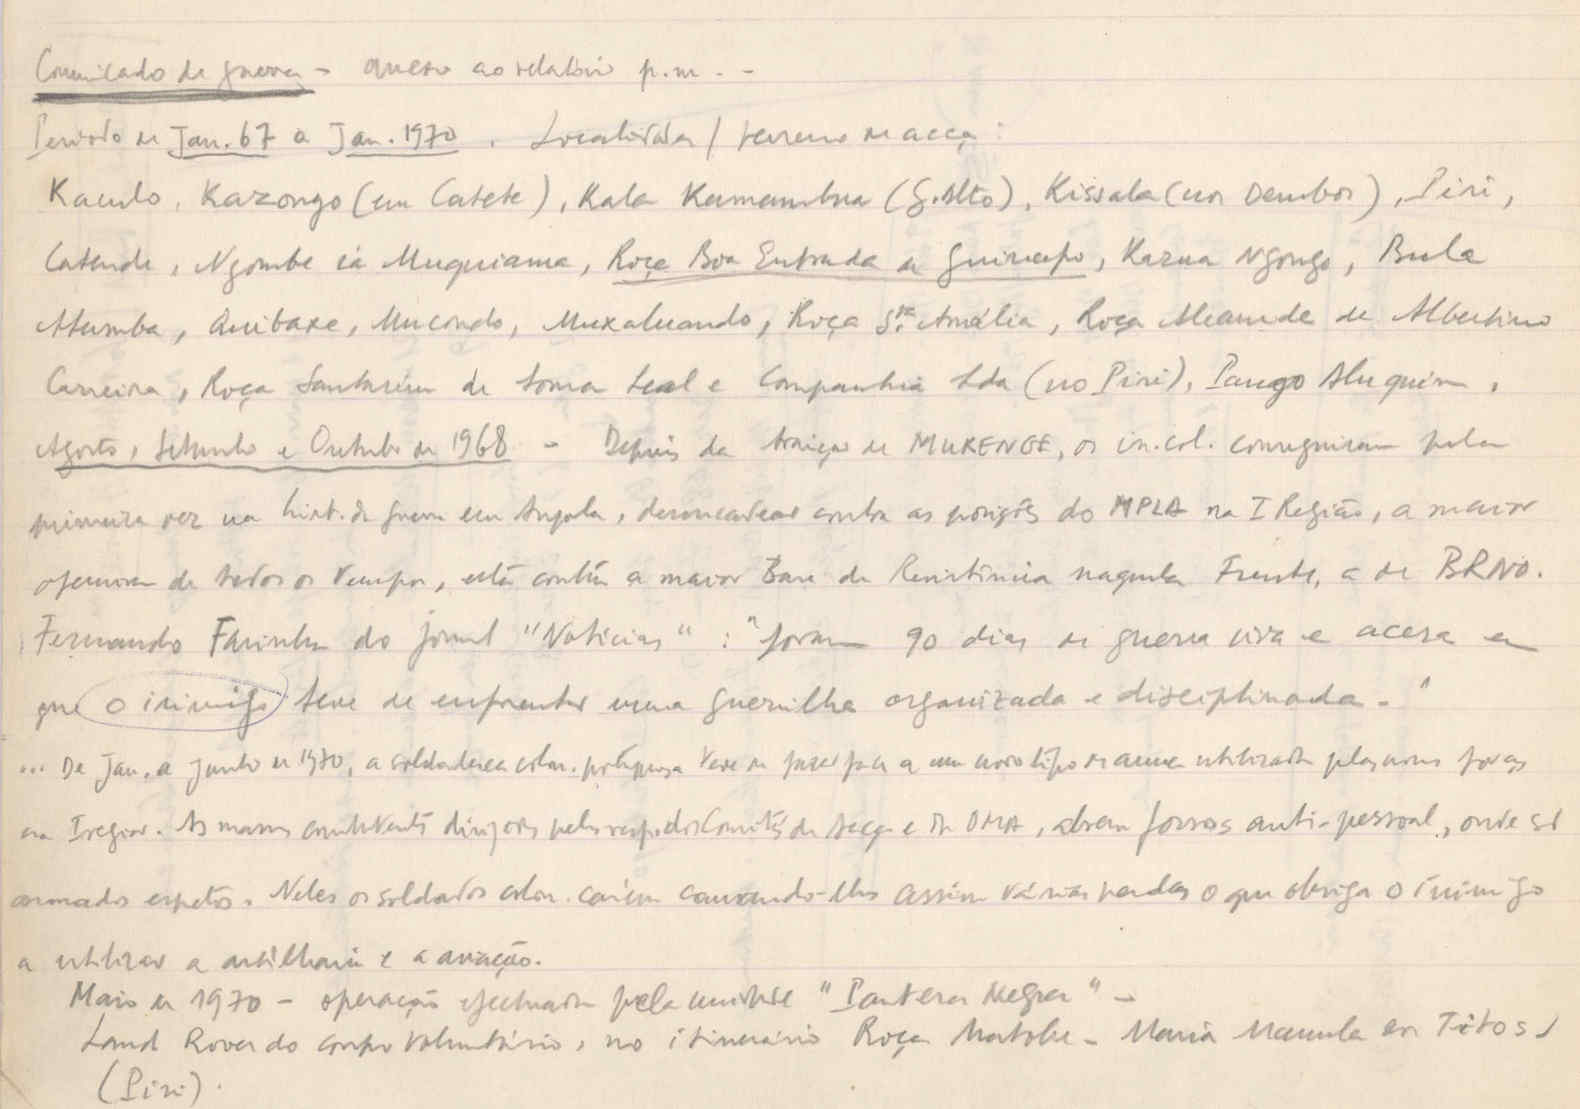 Comunicado de guerra - anexo ao relatório p.m. -
Período de Jan. 67 a Jan. 1970. Localidades / terreno de acção:
Kaulo, Kazongo (em Catete), Kala Kamambua (G. Alto), Kissala (nos Dembos), Piri,
Catende, Ngombe ia Muquiama, Roça Boa Entrada de, Kazua Ngongo, Bula
Atumba, Quibaxe, Mucondo, Muxaluando, Roça Sta. Amélia, Roça de Albertino
Carreira, Roça Santarém de Soma Leal e Companhia Lda (no Piri), Pango Aluquém,
Agosto, Setembro e Outubro de 1968 - Depois da traição de MUKENGE, os in. col. conseguiram pela
primeira vez na hist. da guerra em Angola, desencadear contra as posições do MPLA na I Região, a maior
ofensiva de todos os tempos, esta contra a maior Base de Resistência naquela Frente, a de BRNO.
Fernando Farinha do jornal "Notícias" : "foram 90 dias de guerra viva e acesa em
que o inimigo teve de enfrentar uma guerrilha organizada e disciplinada."
... De Jan. a Junho de 1970, a soldadesca colon. portuguesa teve de fazer face a um novo tipo de arma utilizada pelas nossas forças
na I região. As massas combatentes dirigidas pelos resp. dos Comités de Acção e da OMA, abrem fossos anti-pessoal, onde são
armados espetos. Neles os soldados colon. caiem causando-lhes assim várias perdas o que obriga o inimigo
a utilizar a artilharia e a aviação.
Maio de 1970 - operação efectuada pela unidade "Pantera Negra" -
Land Rover do corpo voluntário, no itinerário Roça - Maria Manuela em Titos
(Piri).